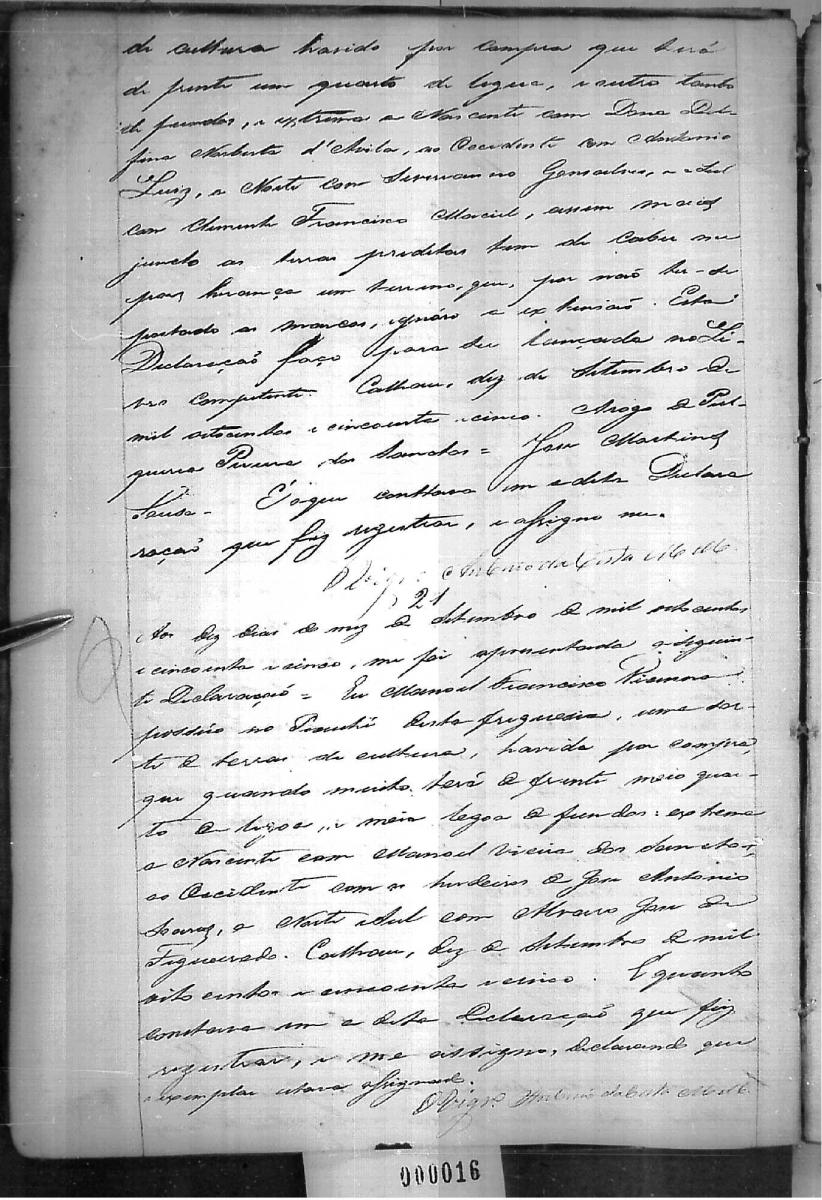 de cultura havido por compra que terá
de frente um quarto de legua, e outro tanto
de fundos, e extrema a Nascente com Dona Del-
fina Norberta d'Avila, ao Occidente com Antonio
Luiz, a Norte com Severianno Gonsalves, e a Sul
com Clemente Francisco Maciel, assim mais
juncto as terras preditas tem de caber me
por herança um terreno, que, por não ter-se
postado as marcas, ignóro a extensão. Esta
Declaração faço para ser lançada no Li-
vro competente. Calhau, dez de Setembro de
mil oitocentos e cincoenta e cinco. Arogo de Pul-
queria Pereira dos Sanctos = José Martins
Sousa - É o que continha em a dita Declara
ração que fiz rezistrar, e assigno me.
O Vigr.o Antonio da Costa
21
Aos dez dias do mez de Setembro de mil oitocentos
e cincoenta e cinco, me foi apresentada a seguin-
te Declaração = Eu Manoel Francisco Vianna
possúo no desta freguesia, uma sor-
te de terras de cultura, havida por compra,
que quando muito terá de frente meio quar-
to de legoa, e meia legoa de fundos: extrema
a Nascente com Manoel Vieira dos Sanctos,
ao Occidente com os herdeiros de José Antonio
a Norte e Sul com Alvaro José de
Figueiredo. Calhau, dez de Setembro de mil
oito centos e cincoenta e cinco. E quanto
constava em a dita Declaração que fiz
rezistrar, e me assigno, declarando que
o exemplar estava assignado.
O Vigr.o Antonio da Costa
000016